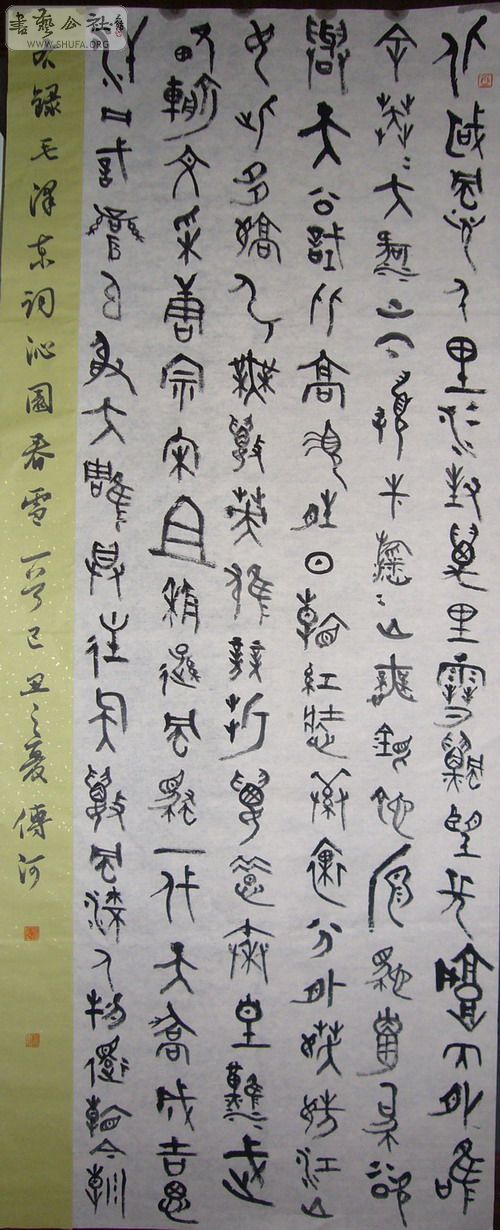 北國風光千里冰封萬里雪飄望長城內外惟
余莽莽大河上下頓失滔滔山舞銀蛇原馳蠟象欲
與天公試比高須晴日看紅裝素裹分外妖嬈江山
如此多嬌引無數英雄競折腰惜秦皇漢武
略輸文采唐宗宋祖稍遜風騷一代天驕成吉思
汗只識彎弓射大雕俱往矣數風流人物還看今朝
右錄毛澤東词沁園春雪一首己丑之夏傳河
書藝公社
WWW.SHUFA.ORG